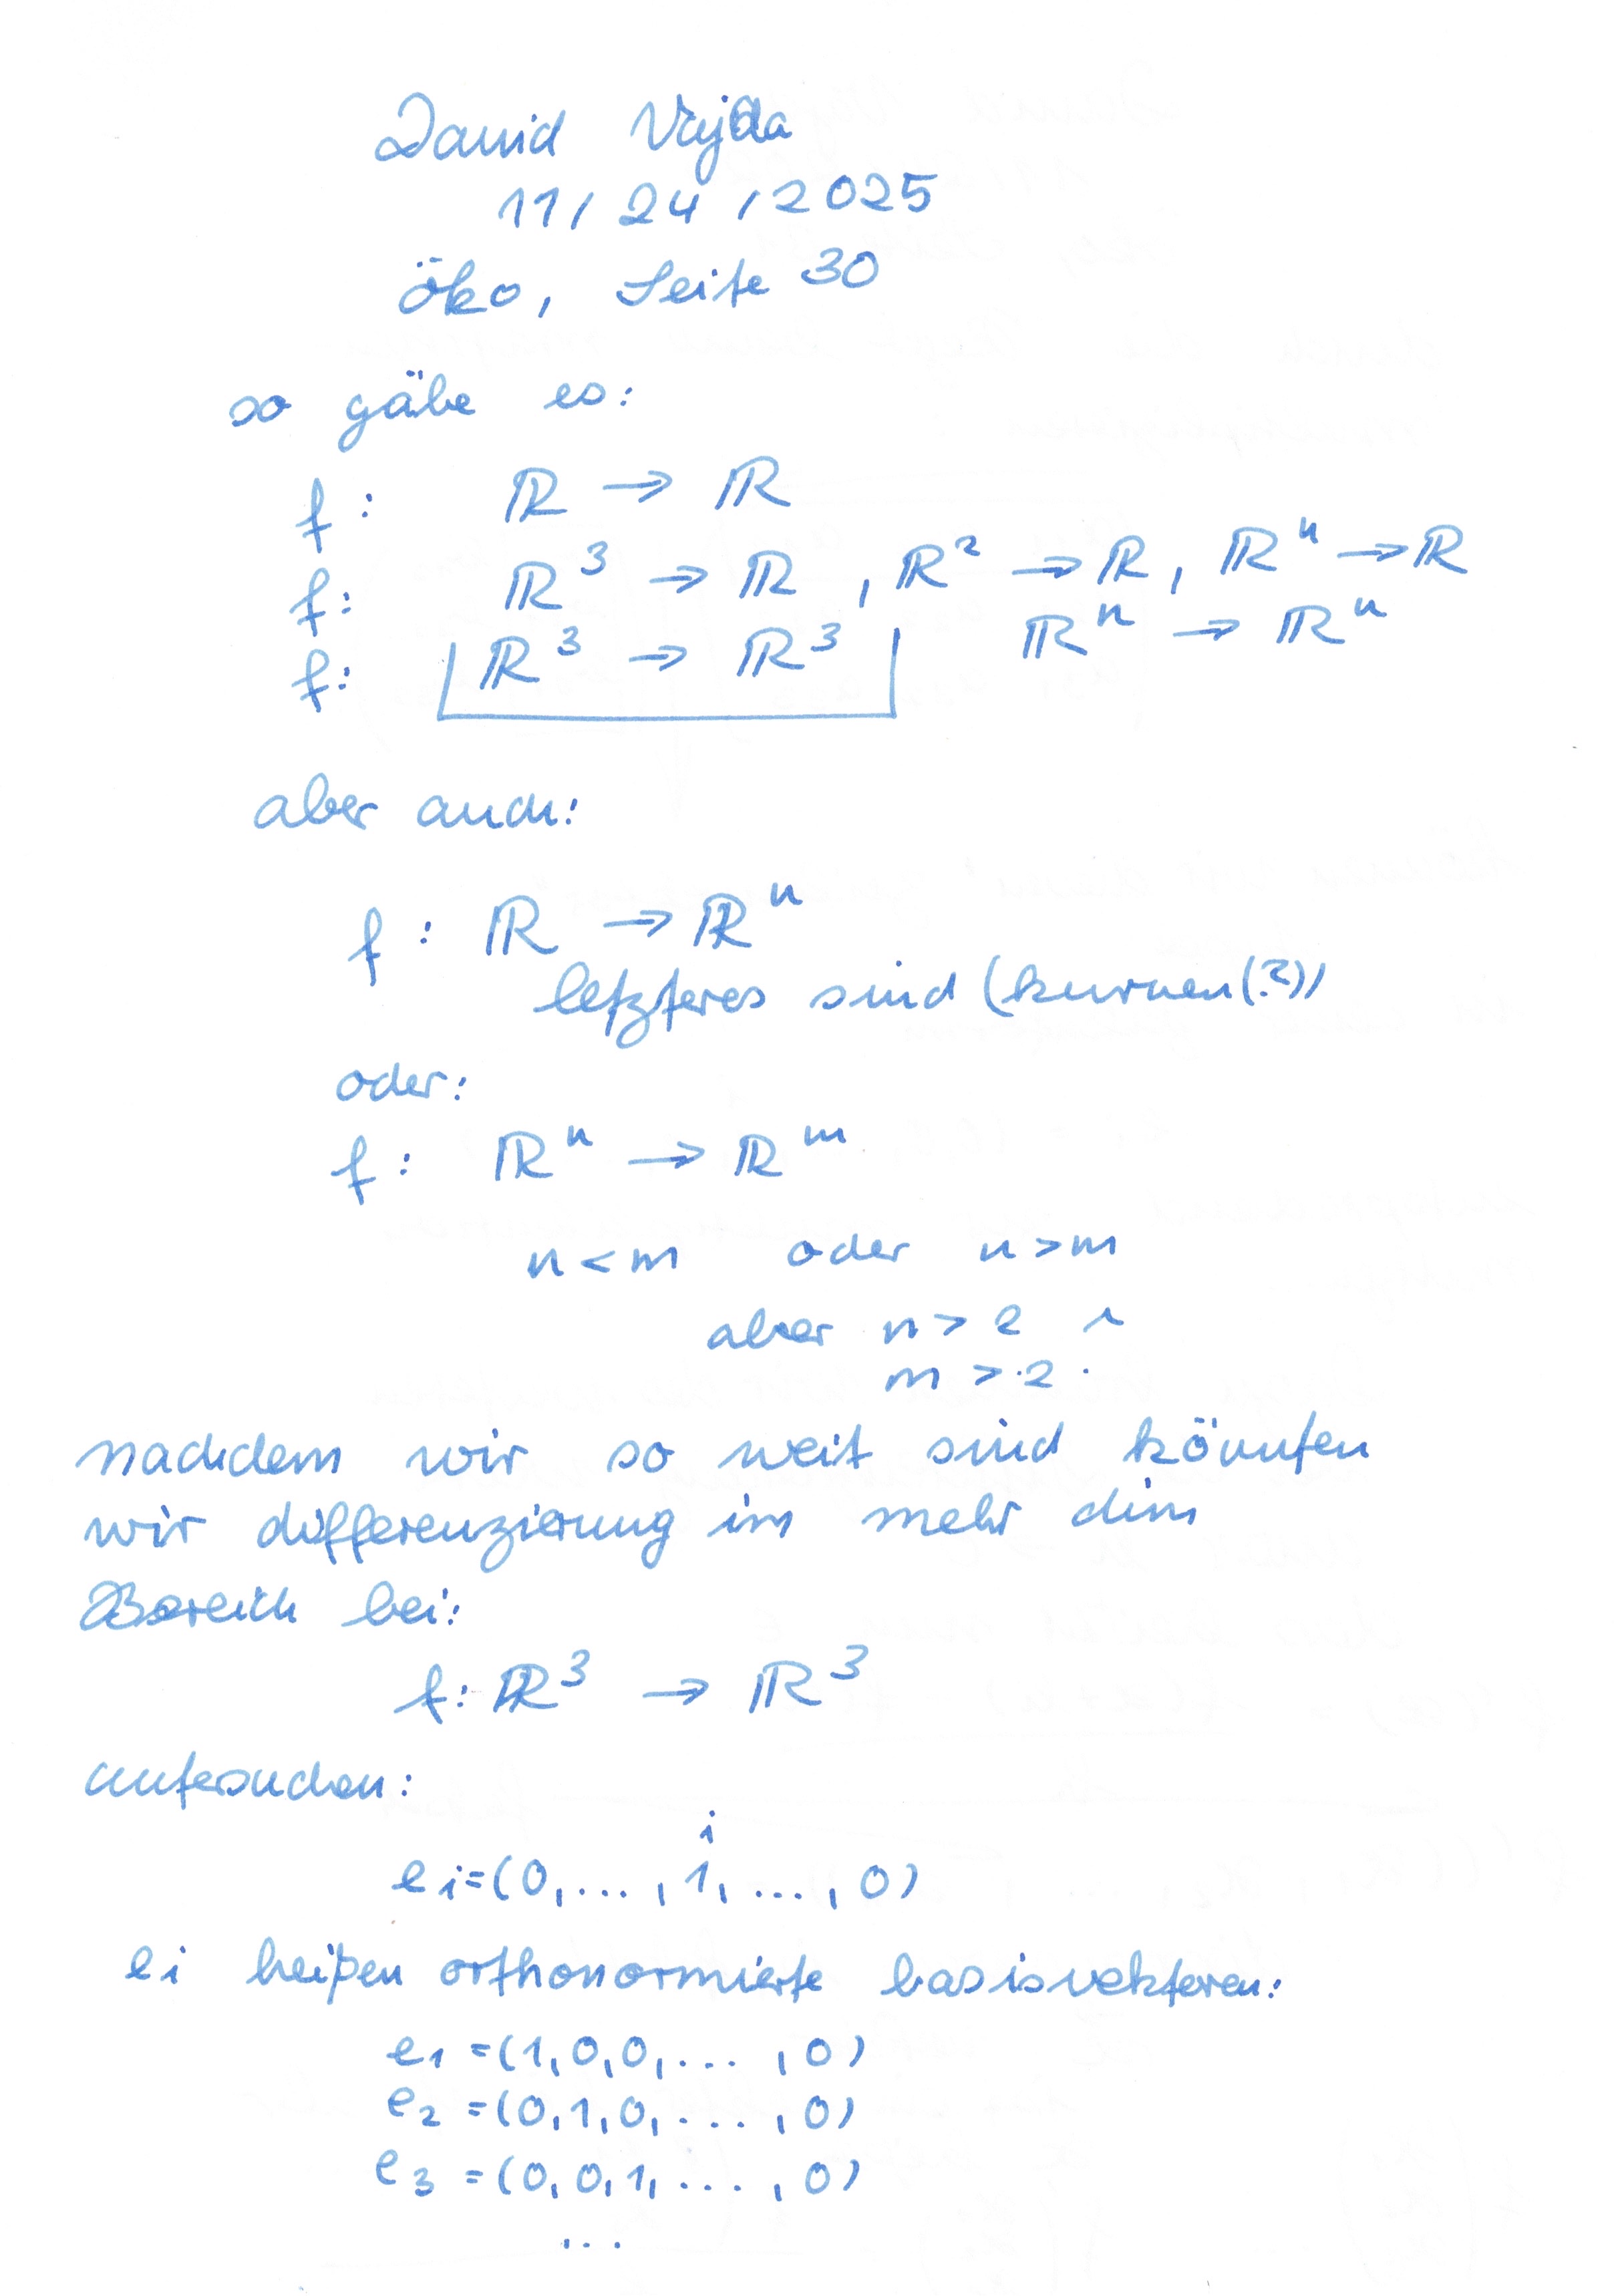 David Vajda
11/24/2025
Öko, Seite 30
so gäbe es:
f: ℝ → ℝ
f: ℝ³ → ℝ, ℝ² → ℝ, ℝⁿ → ℝ
f: ℝ³ → ℝ³ ℝⁿ → ℝⁿ
aber auch:
f: ℝ → ℝⁿ
letzteres sind (kurven(?))
oder:
f: ℝⁿ → ℝᵐ
n < m oder n > m
aber n > 2,
m > 2.
nachdem wir so weit sind könnten
wir differenzierung im mehr dim
Bereich bei:
f: ℝ³ → ℝ³
untersuchen:
i
ei=(0,...,1,...,0)
ei heißen orthonormierte basisvektoren:
e1 =(1,0,0,...,0)
e2 =(0,1,0,...,0)
e3 =(0,0,1,...,0)
...